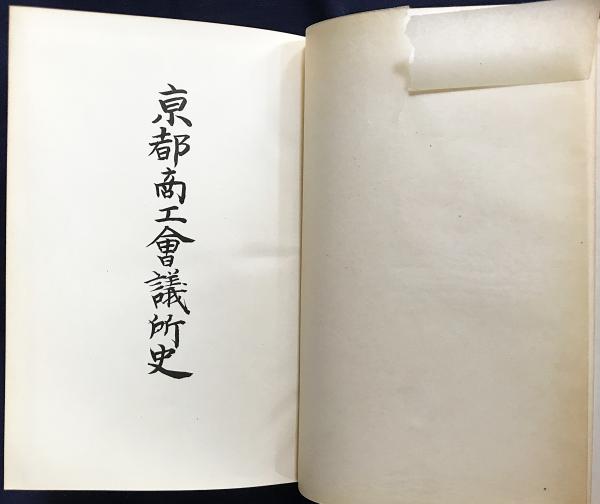 京都商工會議所史